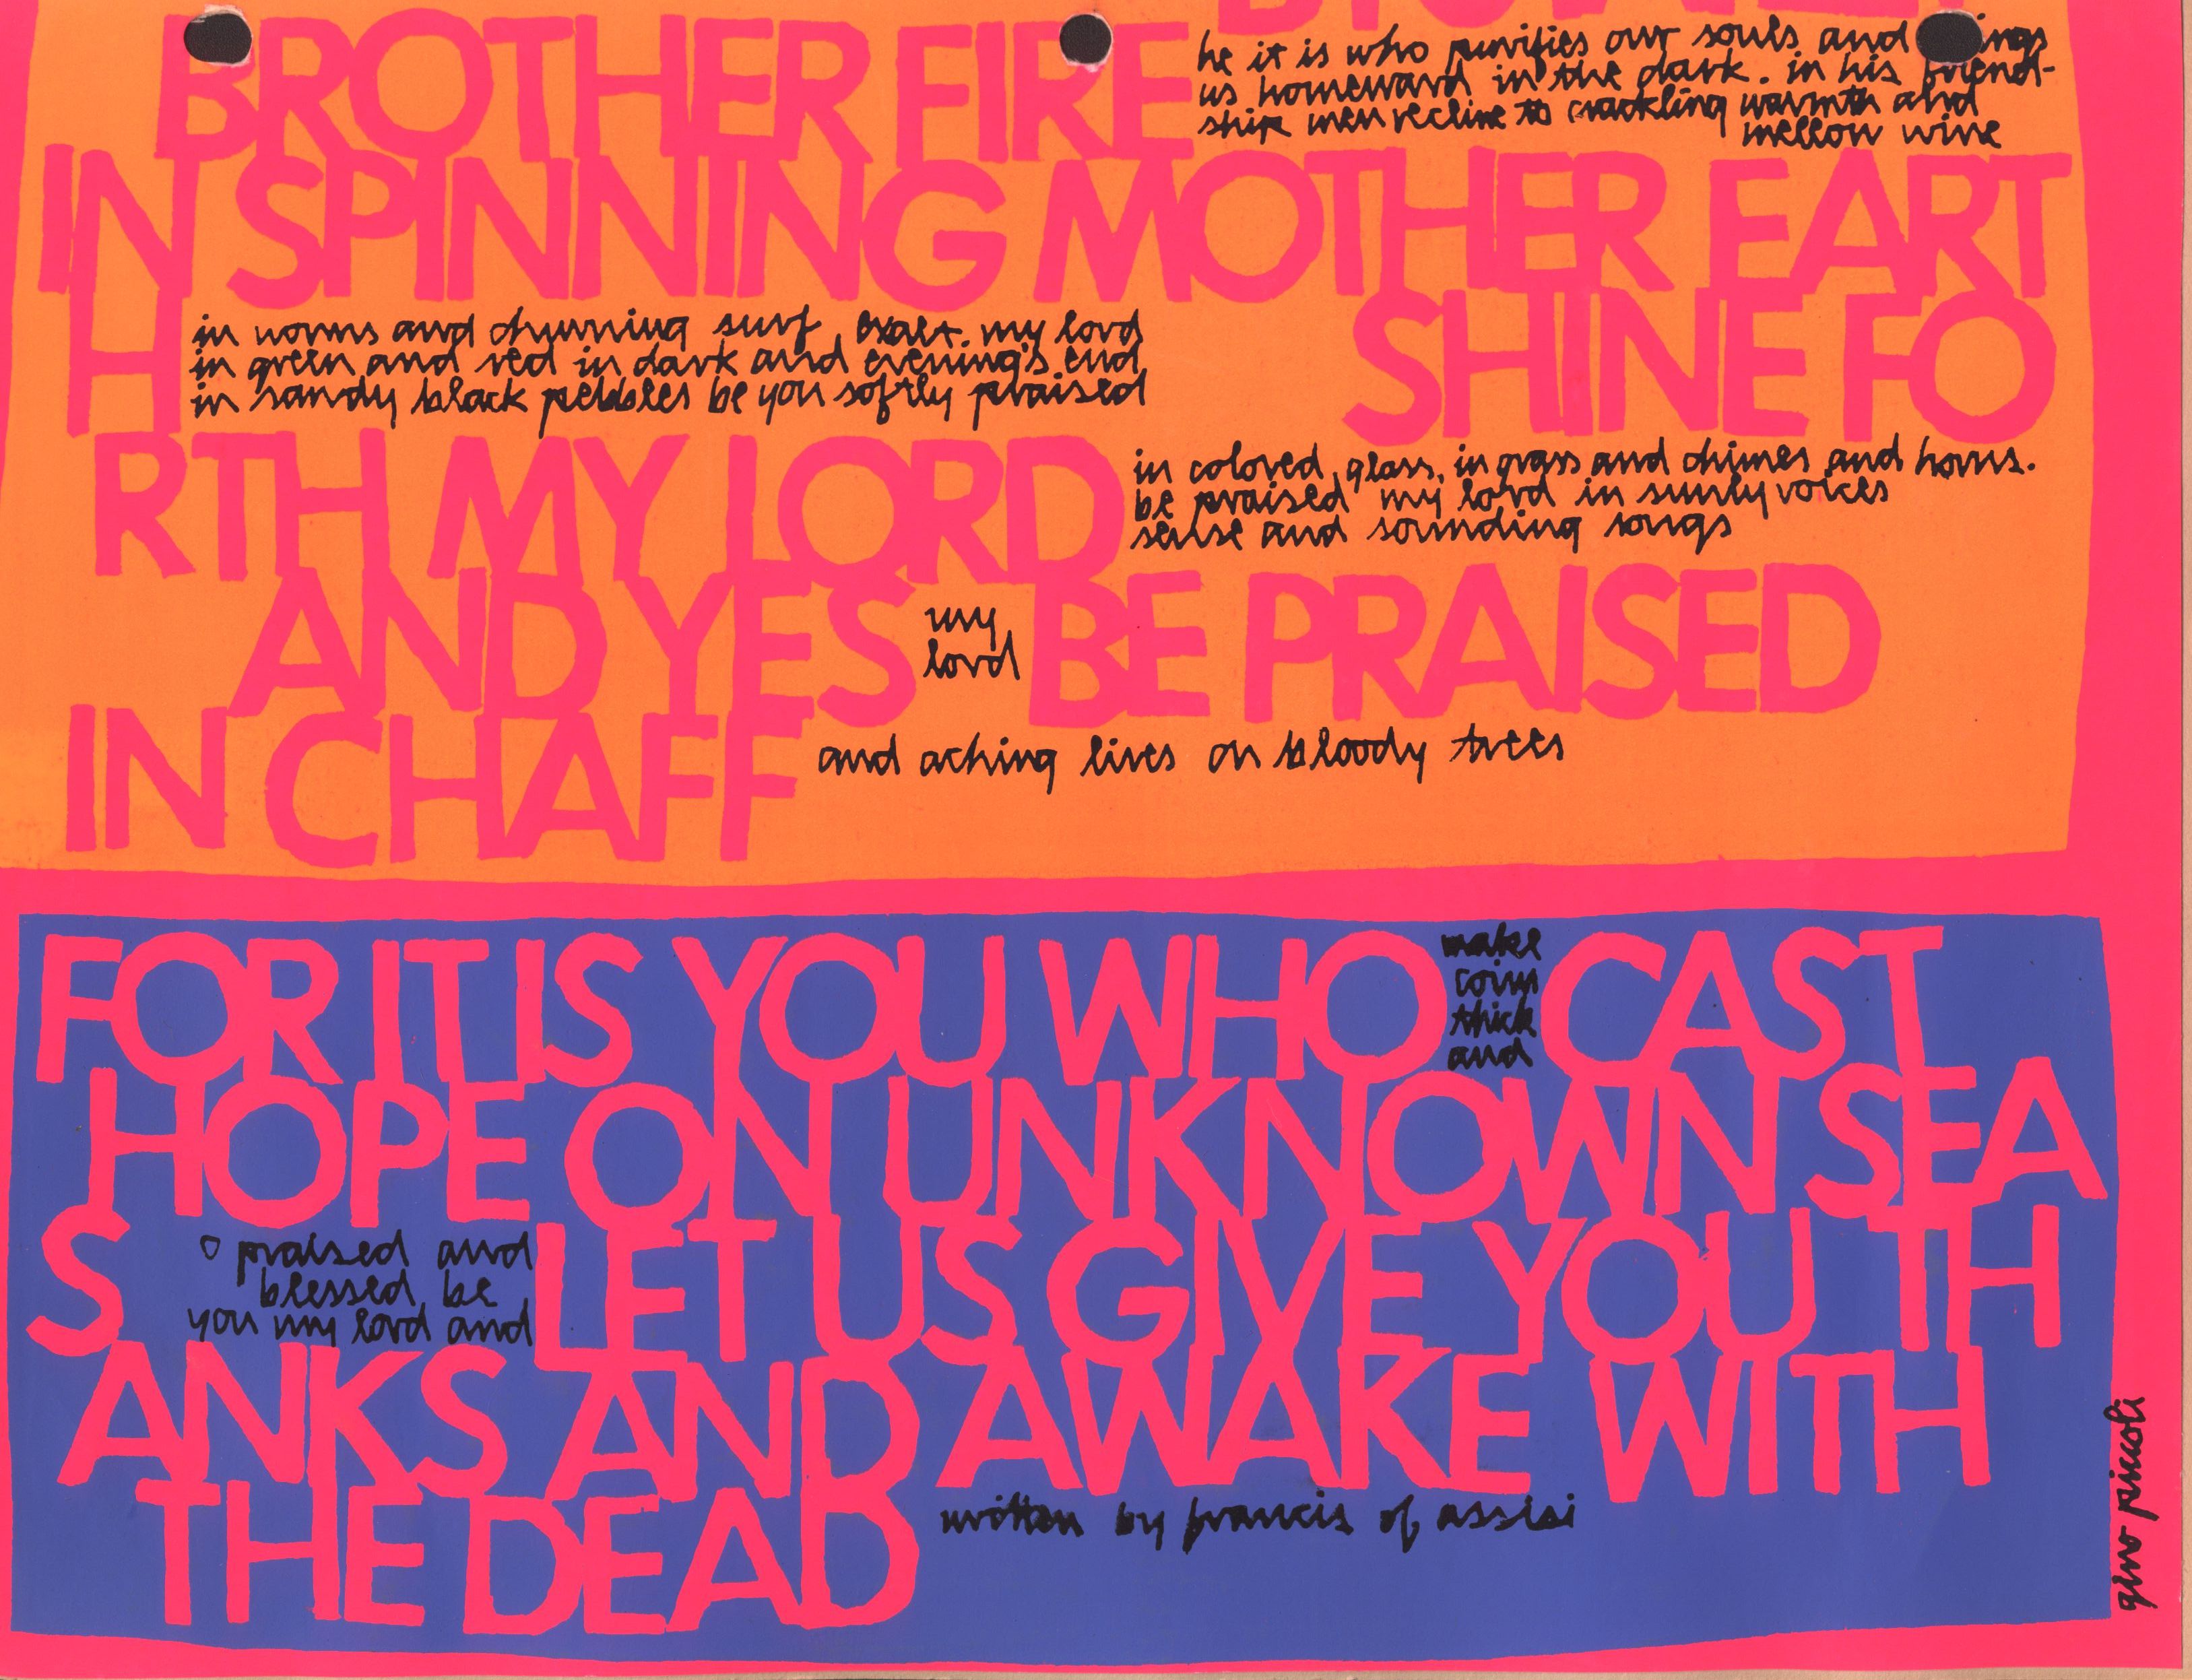 BROTHER FIRE
he it is who purifies our souls and
us homeward in the dark. in his friend-
ship men recline to crackling warmth and
mellow wine
IN SPINNING MOTHER EART
H
in worms and churning surf exalt my lord
in green and red in dark and evening's end
in sandy black pebbles be you softly praised
SHINE FO
RTH MY LORD
in colored glass, in grass and chimes and horns.
be praised my lord in sunly voices
sense and sounding songs
AND YES my lord BE PRAISED
IN CHAFF and aching lives on bloody trees
FOR IT IS YOU WHO
make
coim
thick
and
CAST
HOPE ON UNKNOWN SEA
S
o praised and
blessed be
you my lord and
LET US GIVE YOU TH
ANKS AND AWAKE WITH
THE DEAD written by francis of assisi
gino piccoli